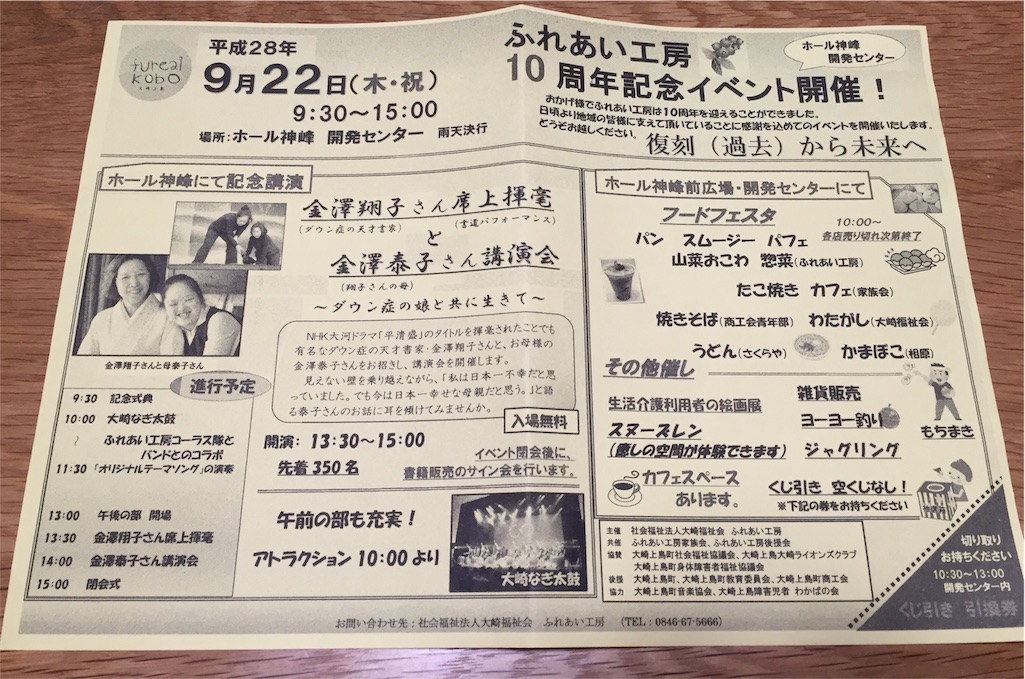 fureai
KOBO
大崎上島
平成28年
9月22日(木・祝)
9:30～15:00
場所:ホール神峰 開発センター 雨天決行
ふれあい工房
10周年記念イベント開催！
ホール神峰
開発センター
おかげ様でふれあい工房は10周年を迎えることができました。
日頃より地域の皆様に支えて頂いていることに感謝を込めてのイベントを開催いたします。
どうぞお越しください。
復刻（過去）から未来へ
ホール神峰にて記念講演
金澤翔子さん席上揮毫
(ダウン症の天才書家)
(書道パフォーマンス)
と
金澤泰子さん講演会
(翔子さんの母)
～ダウン症の娘と共に生きて～
金澤翔子さんと母泰子さん
NHK大河ドラマ「平清盛」のタイトルを揮毫されたことでも
有名なダウン症の天才書家・金澤翔子さんと、お母様の
金澤泰子さんをお招きし、講演会を開催します。
見えない壁を乗り越えながら、「私は日本一不幸だと思
っていました。でも今は日本一幸せな母親だと思う。」と語
る泰子さんのお話に耳を傾けてみませんか。
入場無料
開演: 13:30～15:00
先着350名
イベント閉会後に、
書籍販売のサイン会を行います。
進行予定
9:30 記念式典
10:00 大崎なぎ太鼓
～ ふれあい工房コーラス隊と
バンドとのコラボ
11:30 「オリジナルテーマソング」の演奏
13:00 午後の部 開場
13:30 金澤翔子さん席上揮毫
14:00 金澤泰子さん講演会
15:00 閉会式
午前の部も充実！
アトラクション 10:00 より
大崎なぎ太鼓
ホール神峰前広場・開発センターにて
フードフェスタ
10:00～
各店売り切れ次第終了
パン スムージー パフェ
山菜おこわ 惣菜(ふれあい工房)
たこ焼き カフェ(家族会)
焼きそば(商工会青年部) わたがし(大崎福祉会)
うどん(さくらや) かまぼこ(相原)
その他催し
生活介護利用者の絵画展
雑貨販売
ヨーヨー釣り
スヌーズレン
(癒しの空間が体験できます)
ジャグリング
もちまき
カフェスペース
あります。
くじ引き 空くじなし！
※下記の券をお持ちください
主催 社会福祉法人大崎福祉会 ふれあい工房
共催 ふれあい工房家族会、ふれあい工房後援会
協賛 大崎上島町社会福祉協議会、大崎上島大崎ライオンズクラブ
大崎上島町身体障害者福祉協議会
後援 大崎上島町、大崎上島町教育委員会、大崎上島町商工会
協力 大崎上島町音楽協会、大崎上島障害児者 わかばの会
切り取り
お持ちください
10:30～13:00
開発センター内
くじ引き 引換券
お問い合わせ先：社会福祉法人大崎福祉会 ふれあい工房 （TEL：0846-67-5666）